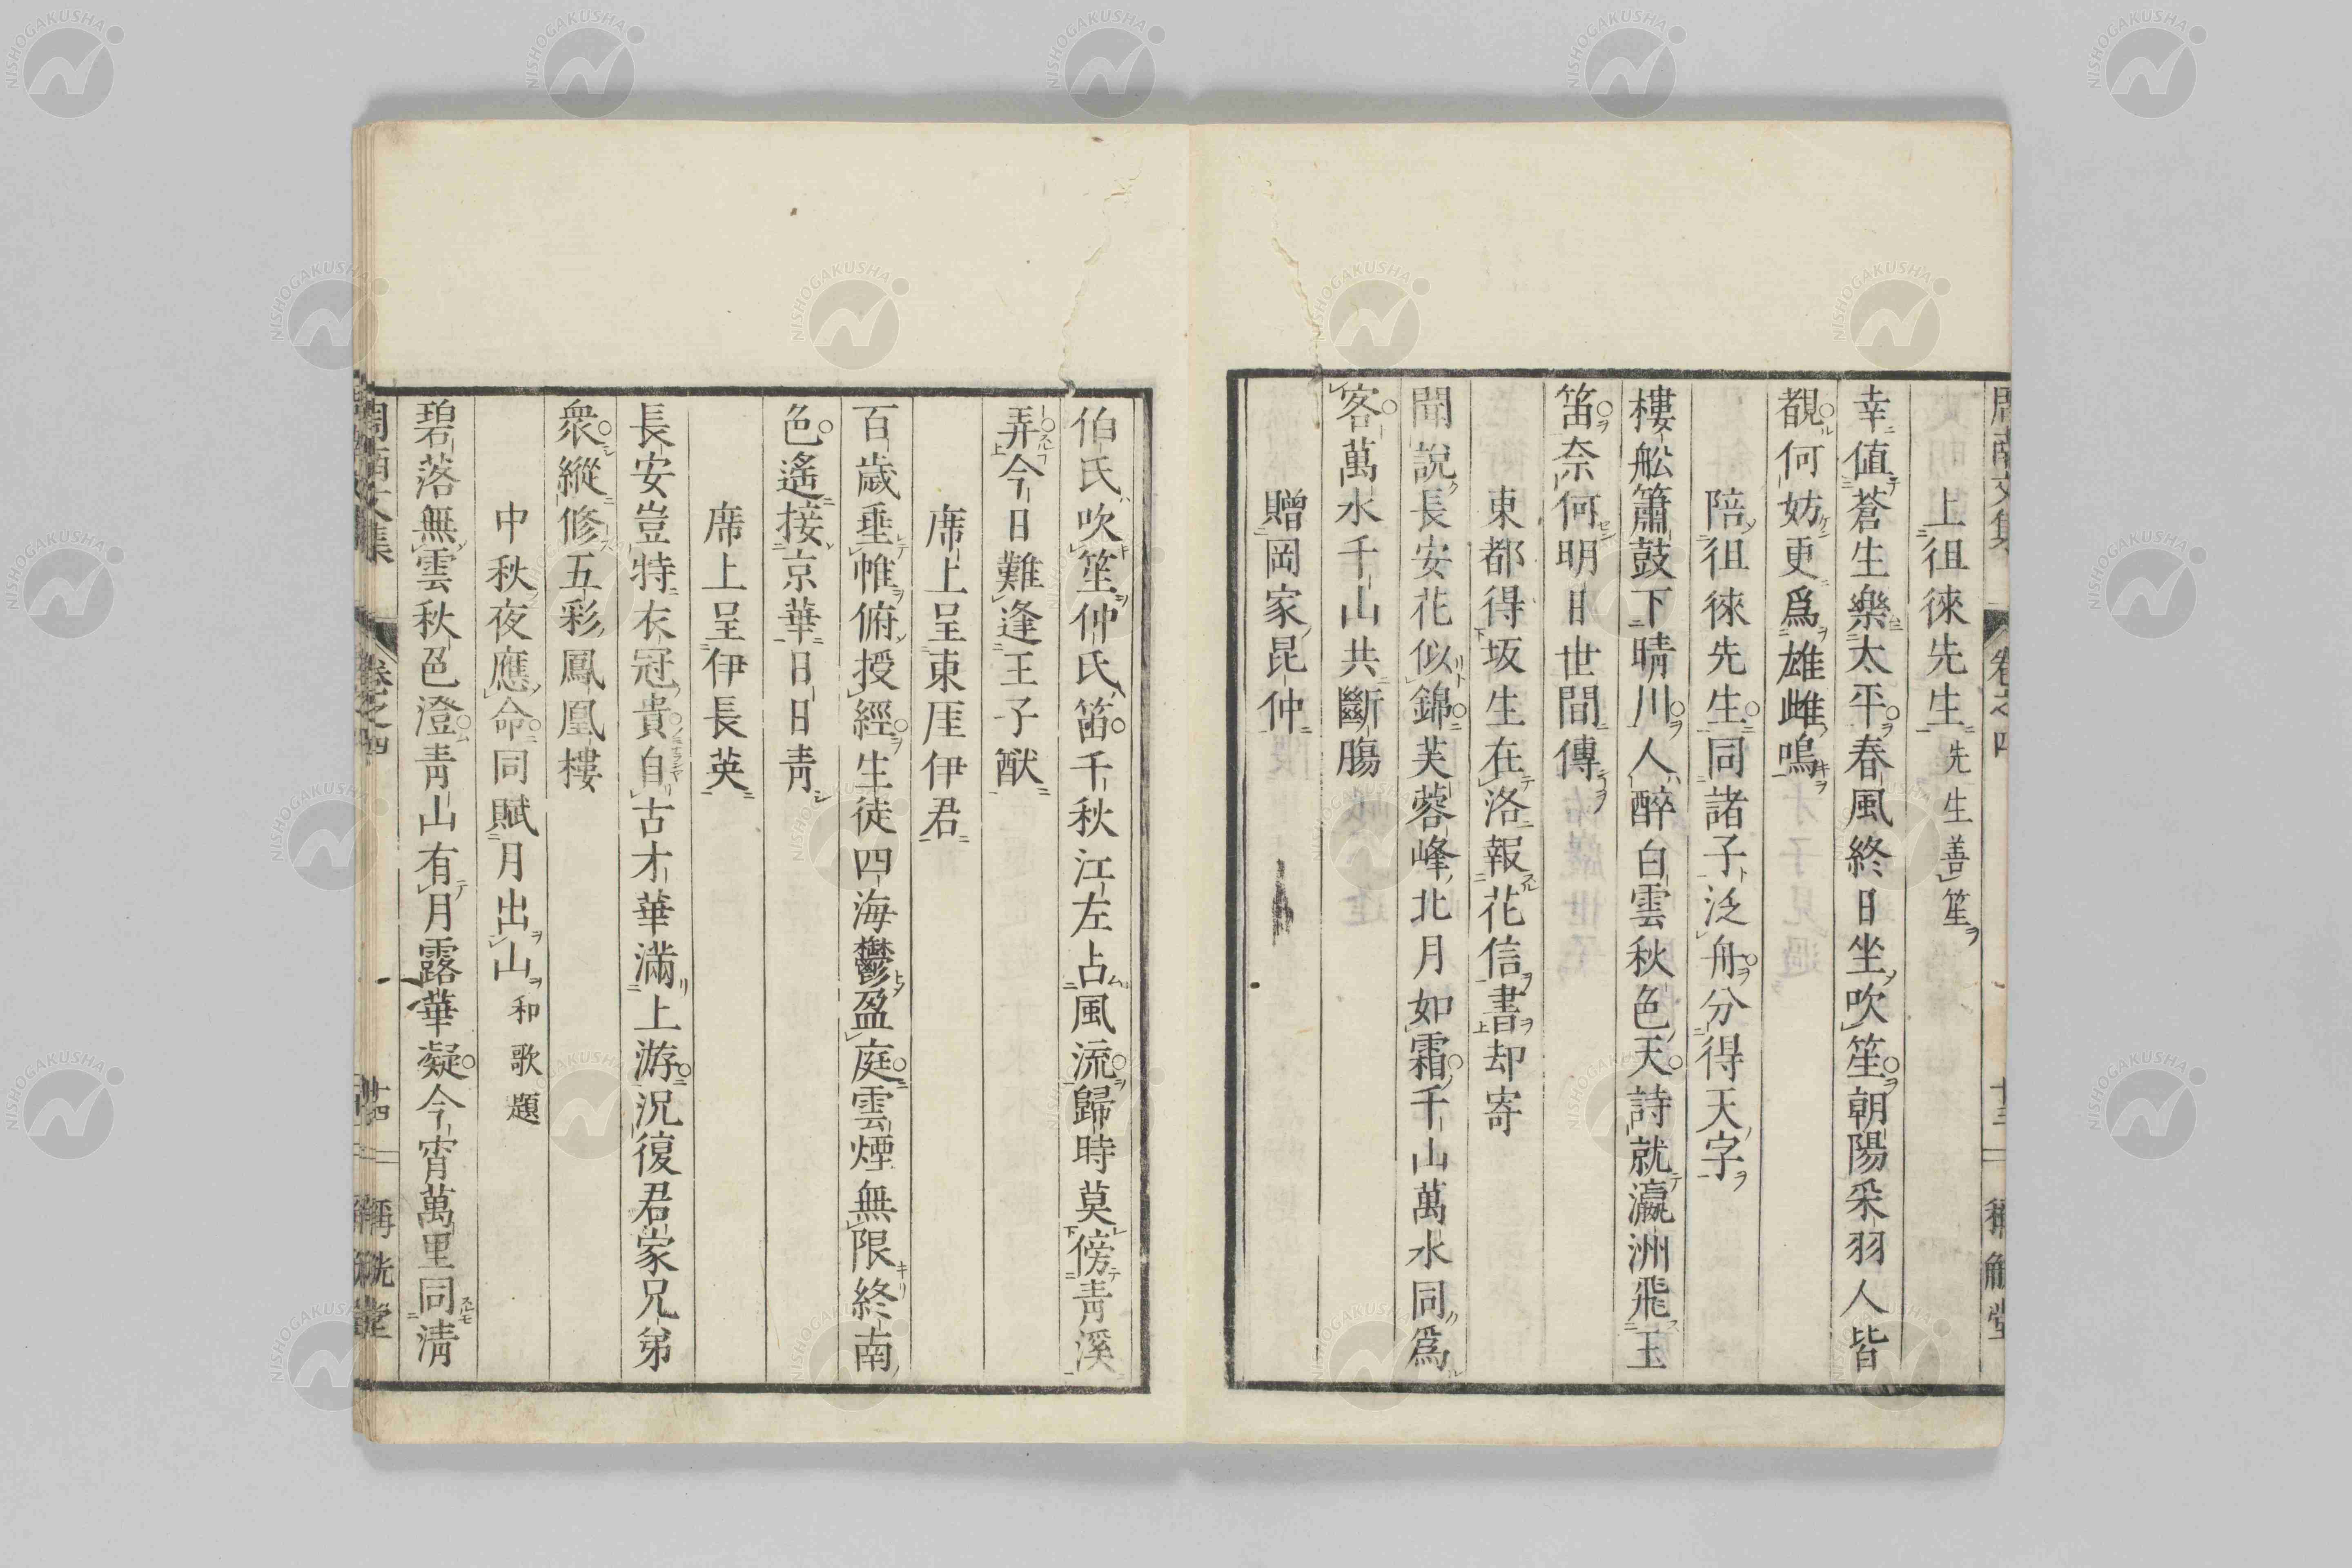 上徂徠先生 先生善笙
幸値蒼生樂太平春風終日坐吹笙朝陽釆羽人皆
覩何妨更爲雄雌鳴
陪徂徠先生同諸子泛舟分得天字
樓舩簫鼓下晴川人醉白雲秋色天詩就瀛洲飛玉
笛奈何明日世間傳
東都得坂生在洛報花信書却寄
聞說長安花似錦芙蓉峰北月如霜千山萬水同爲
客萬水千山共斷膓
贈岡家昆仲
伯氏吹笙仲氏笛千秋江左占風流歸時莫傍靑溪
弄今日難逢王子猷
席上呈東厓伊君
百歲垂帷俯授經生徒四海鬱盈庭雲煙無限終南
色遙接京華日日靑
席上呈伊長英
長安豈特衣冠貴自古才華滿上游況復君家兄弟
衆縱修五彩鳳凰樓
中秋夜應命同賦月出山 和歌題
碧落無雲秋色澄靑山有月露華凝今宵萬里同淸
卷之四
十四
NISHOGAKUSHA